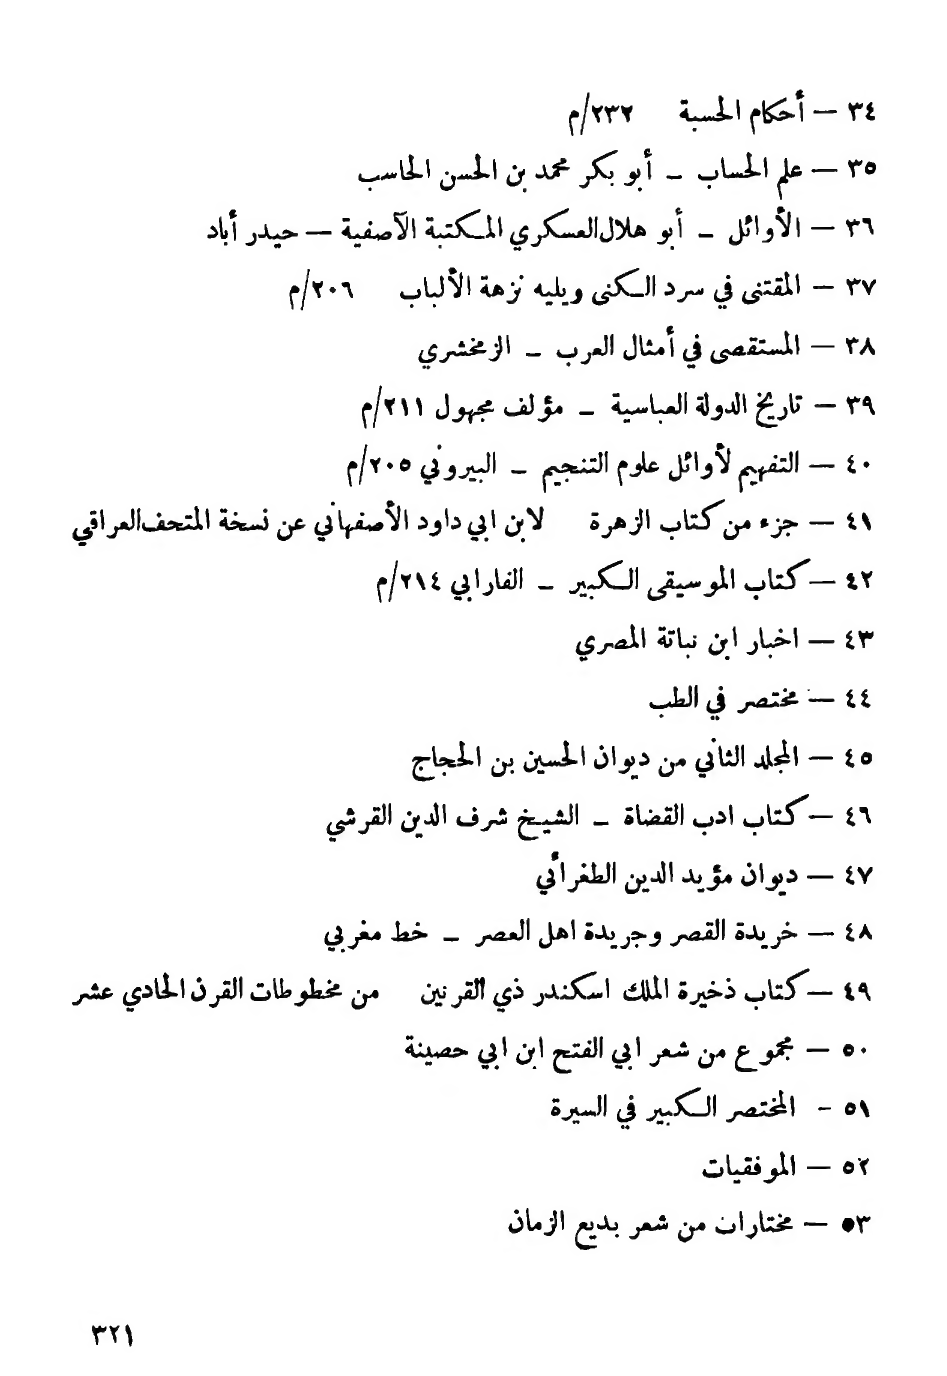 ٣٤ — أحكام الحسبة ٢٣٢/م
٣٥ — علم الحساب – أبو بكر محمد بن الحسن الحاسب
٣٦ — الأوائل – أبو هلال العسكري المكتبة الآصفية — حيدر أباد
٣٧ — المقتنى في سرد الكنى ويليه نزهة الألباب ٢٠٦/م
٣٨ — المستقصى في أمثال العرب – الزمخشري
٣٩ — تاريخ الدولة العباسية – مؤلف مجهول ٢١١/م
٤٠ — التفهيم لأوائل علوم التنجيم – البيروني ٢٠٥/م
٤١ — جزء من كتاب الزهرة لابن ابي داود الأصفهاني عن نسخة المتحف العراقي
٤٢ — كتاب الموسيقى الكبير – الفارابي ٢١٤/م
٤٣ — اخبار ابن نباتة المصري
٤٤ — مختصر في الطب
٤٥ — المجلد الثاني من ديوان الحسين بن الحجاج
٤٦ — كتاب ادب القضاة – الشيخ شرف الدين القرشي
٤٧ — ديوان مؤيد الدين الطغرأئي
٤٨ — خريدة القصر وجريدة اهل العصر – خط مغربي
٤٩ — كتاب ذخيرة الملك اسكندر ذي القرنين من مخطوطات القرن الحادي عشر
٥٠ — مجموع من شعر ابي الفتح ابن ابي حصينة
٥١ - المختصر الكبير في السيرة
٥٢ — الموفقيات
٥٣ — مختارات من شعر بديع الزمان
٣٢١